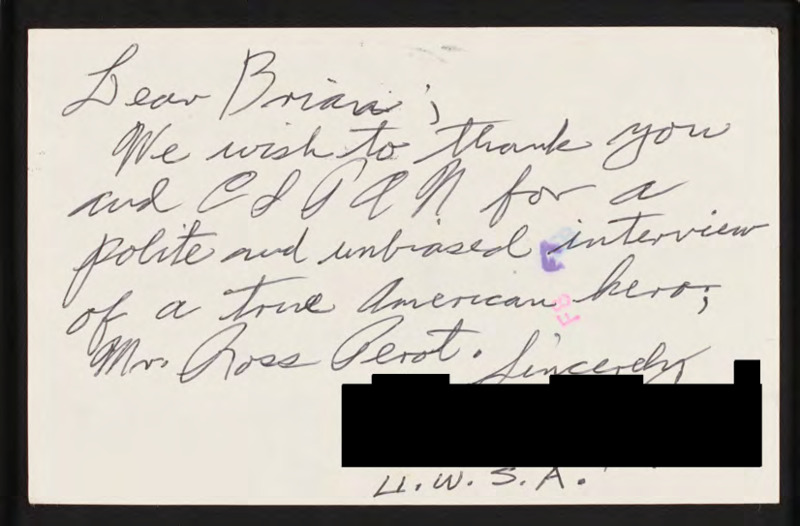 Dear Brian;
We wish to thank you
and CSPAN for a
polite and unbiased interview
of a true American hero,
Mr. Ross Perot. Sincerely,
U.W.S.A.